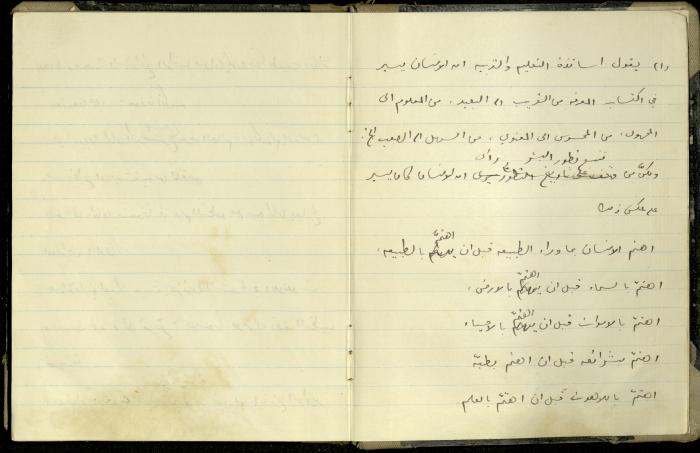 (١) يقول اساتذة التعليم والتربيه ان الانسان يسير
في اكتساب المعرفه من القريب الى البعيد، من المعلوم الى
المجهول، من المحسوس الى المعنوي، من السهل الى الصعب الخ.
تتبع تطور البشر رأى
ولكنّ من تاريخ ان الانسان كان يسير
على عكس ذلك
اهتم الانسان بما وراء الطبيعه قبل ان اهتمّ بالطبيعه،
اهتمّ بالسماء قبل ان اهتمّ بالارض،
اهتمّ بالاموات قبل ان اهتمّ بالاحياء
اهتمّ بشرائعه قبل ان اهتم بطبّه
اهتمّ باللاهوت قبل ان اهتمّ بالعلم